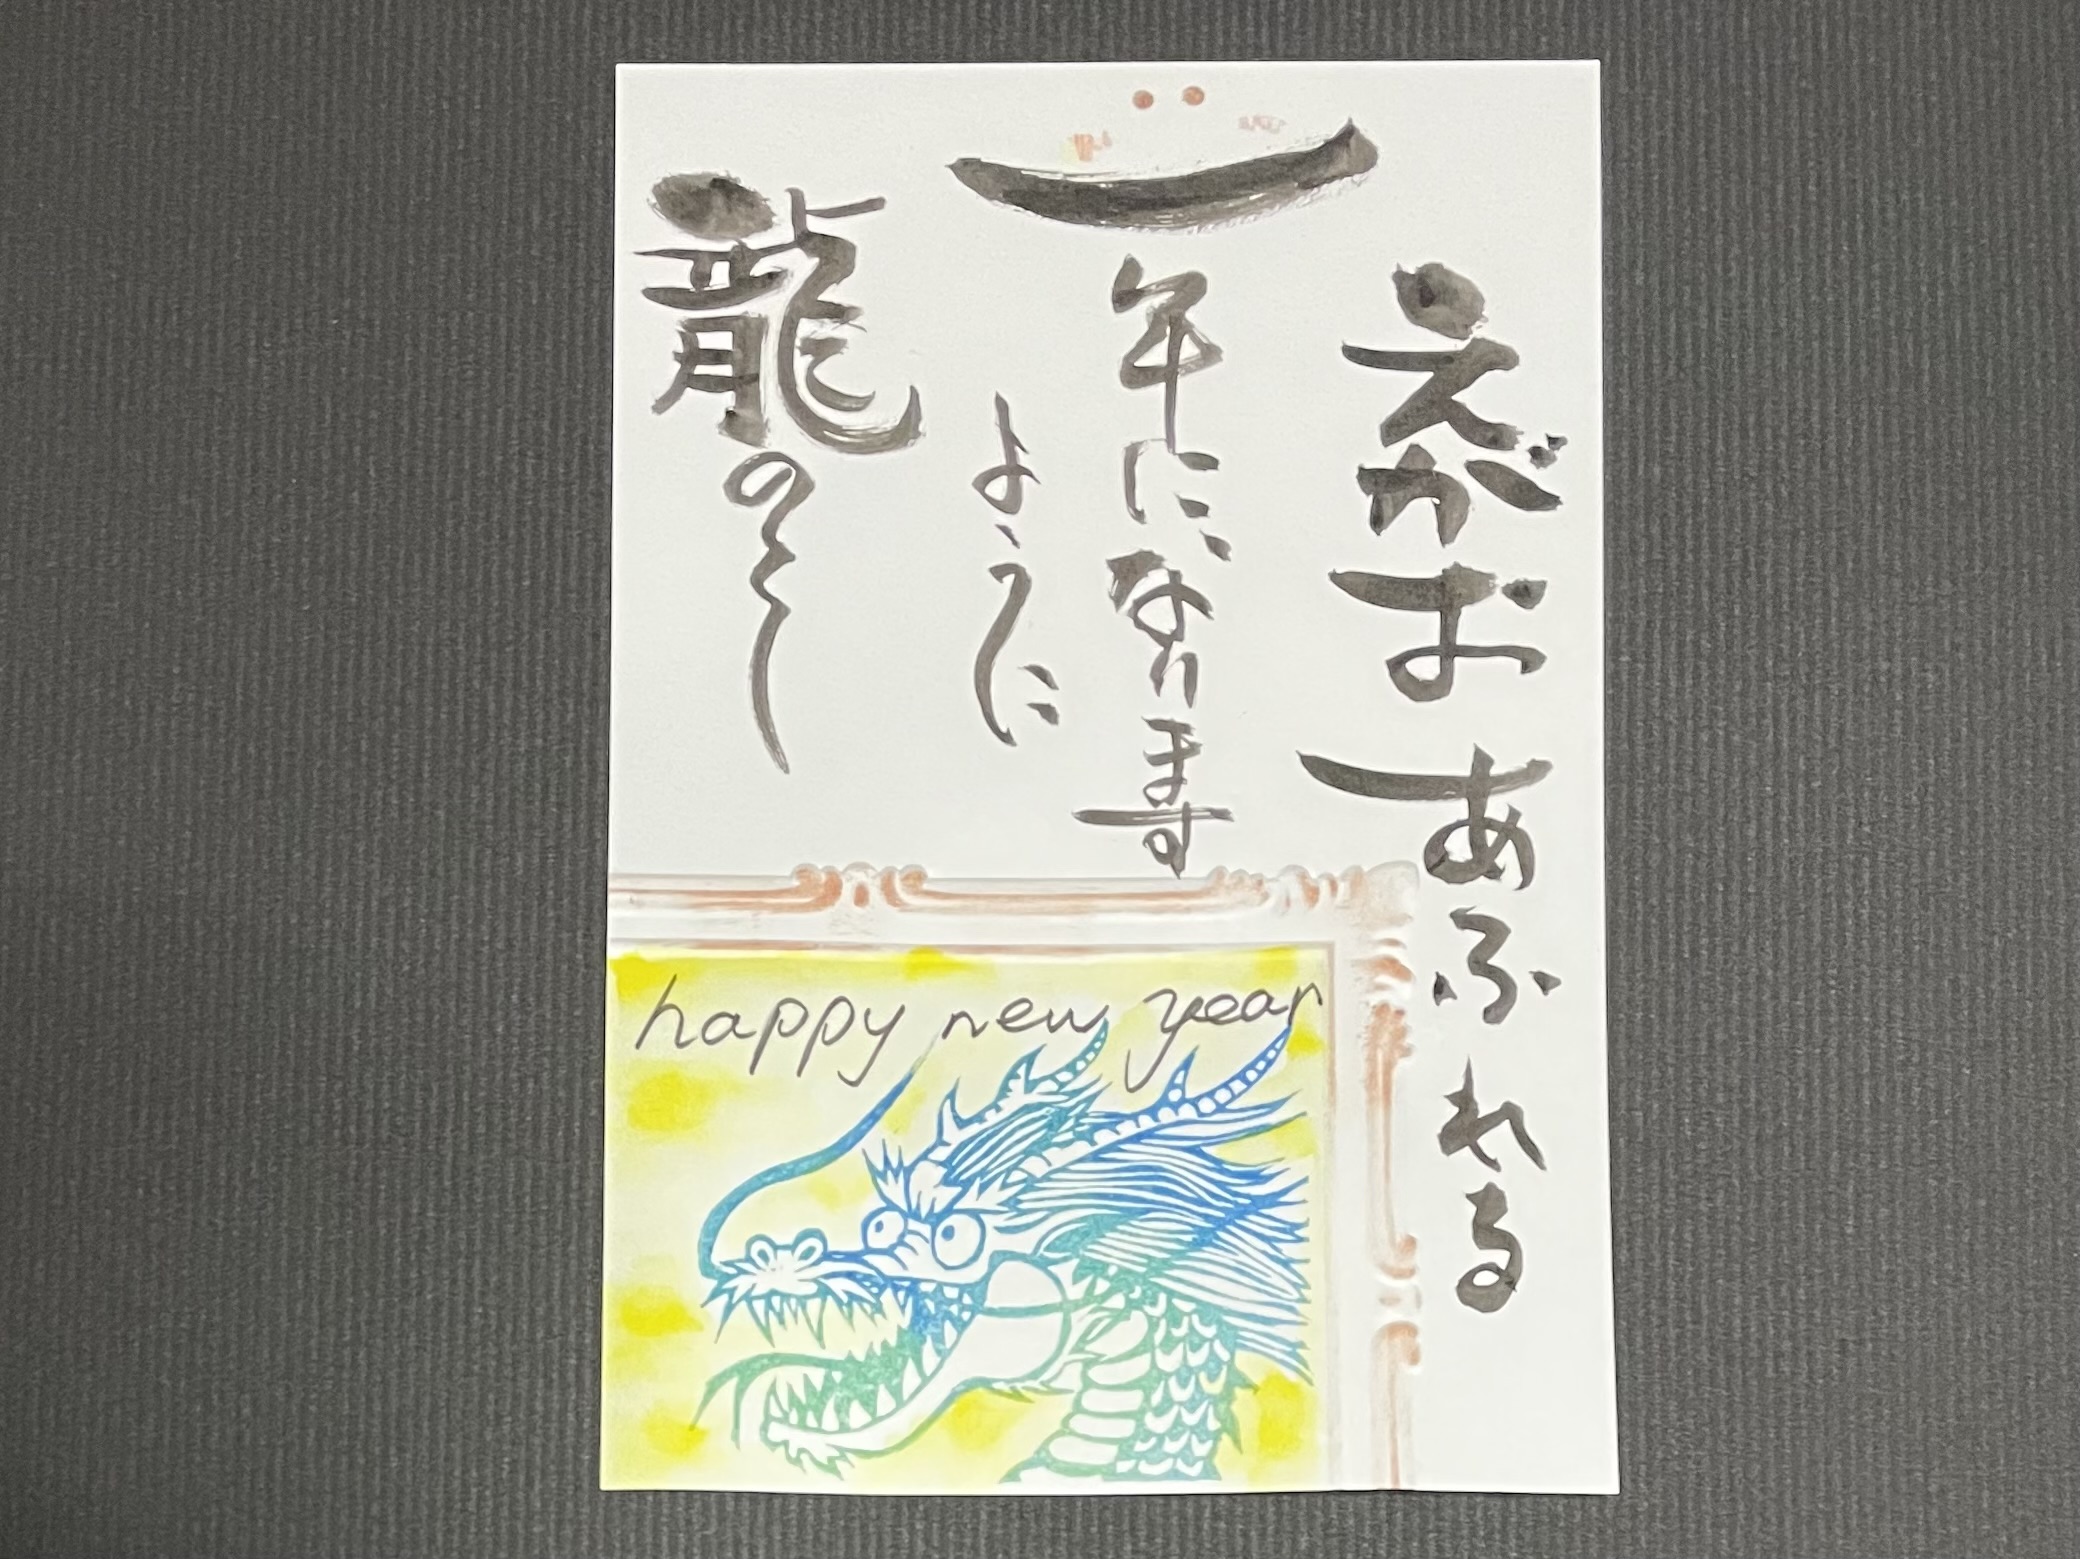 えがおあふれる
一年になります
ように
龍のとし
happy new year